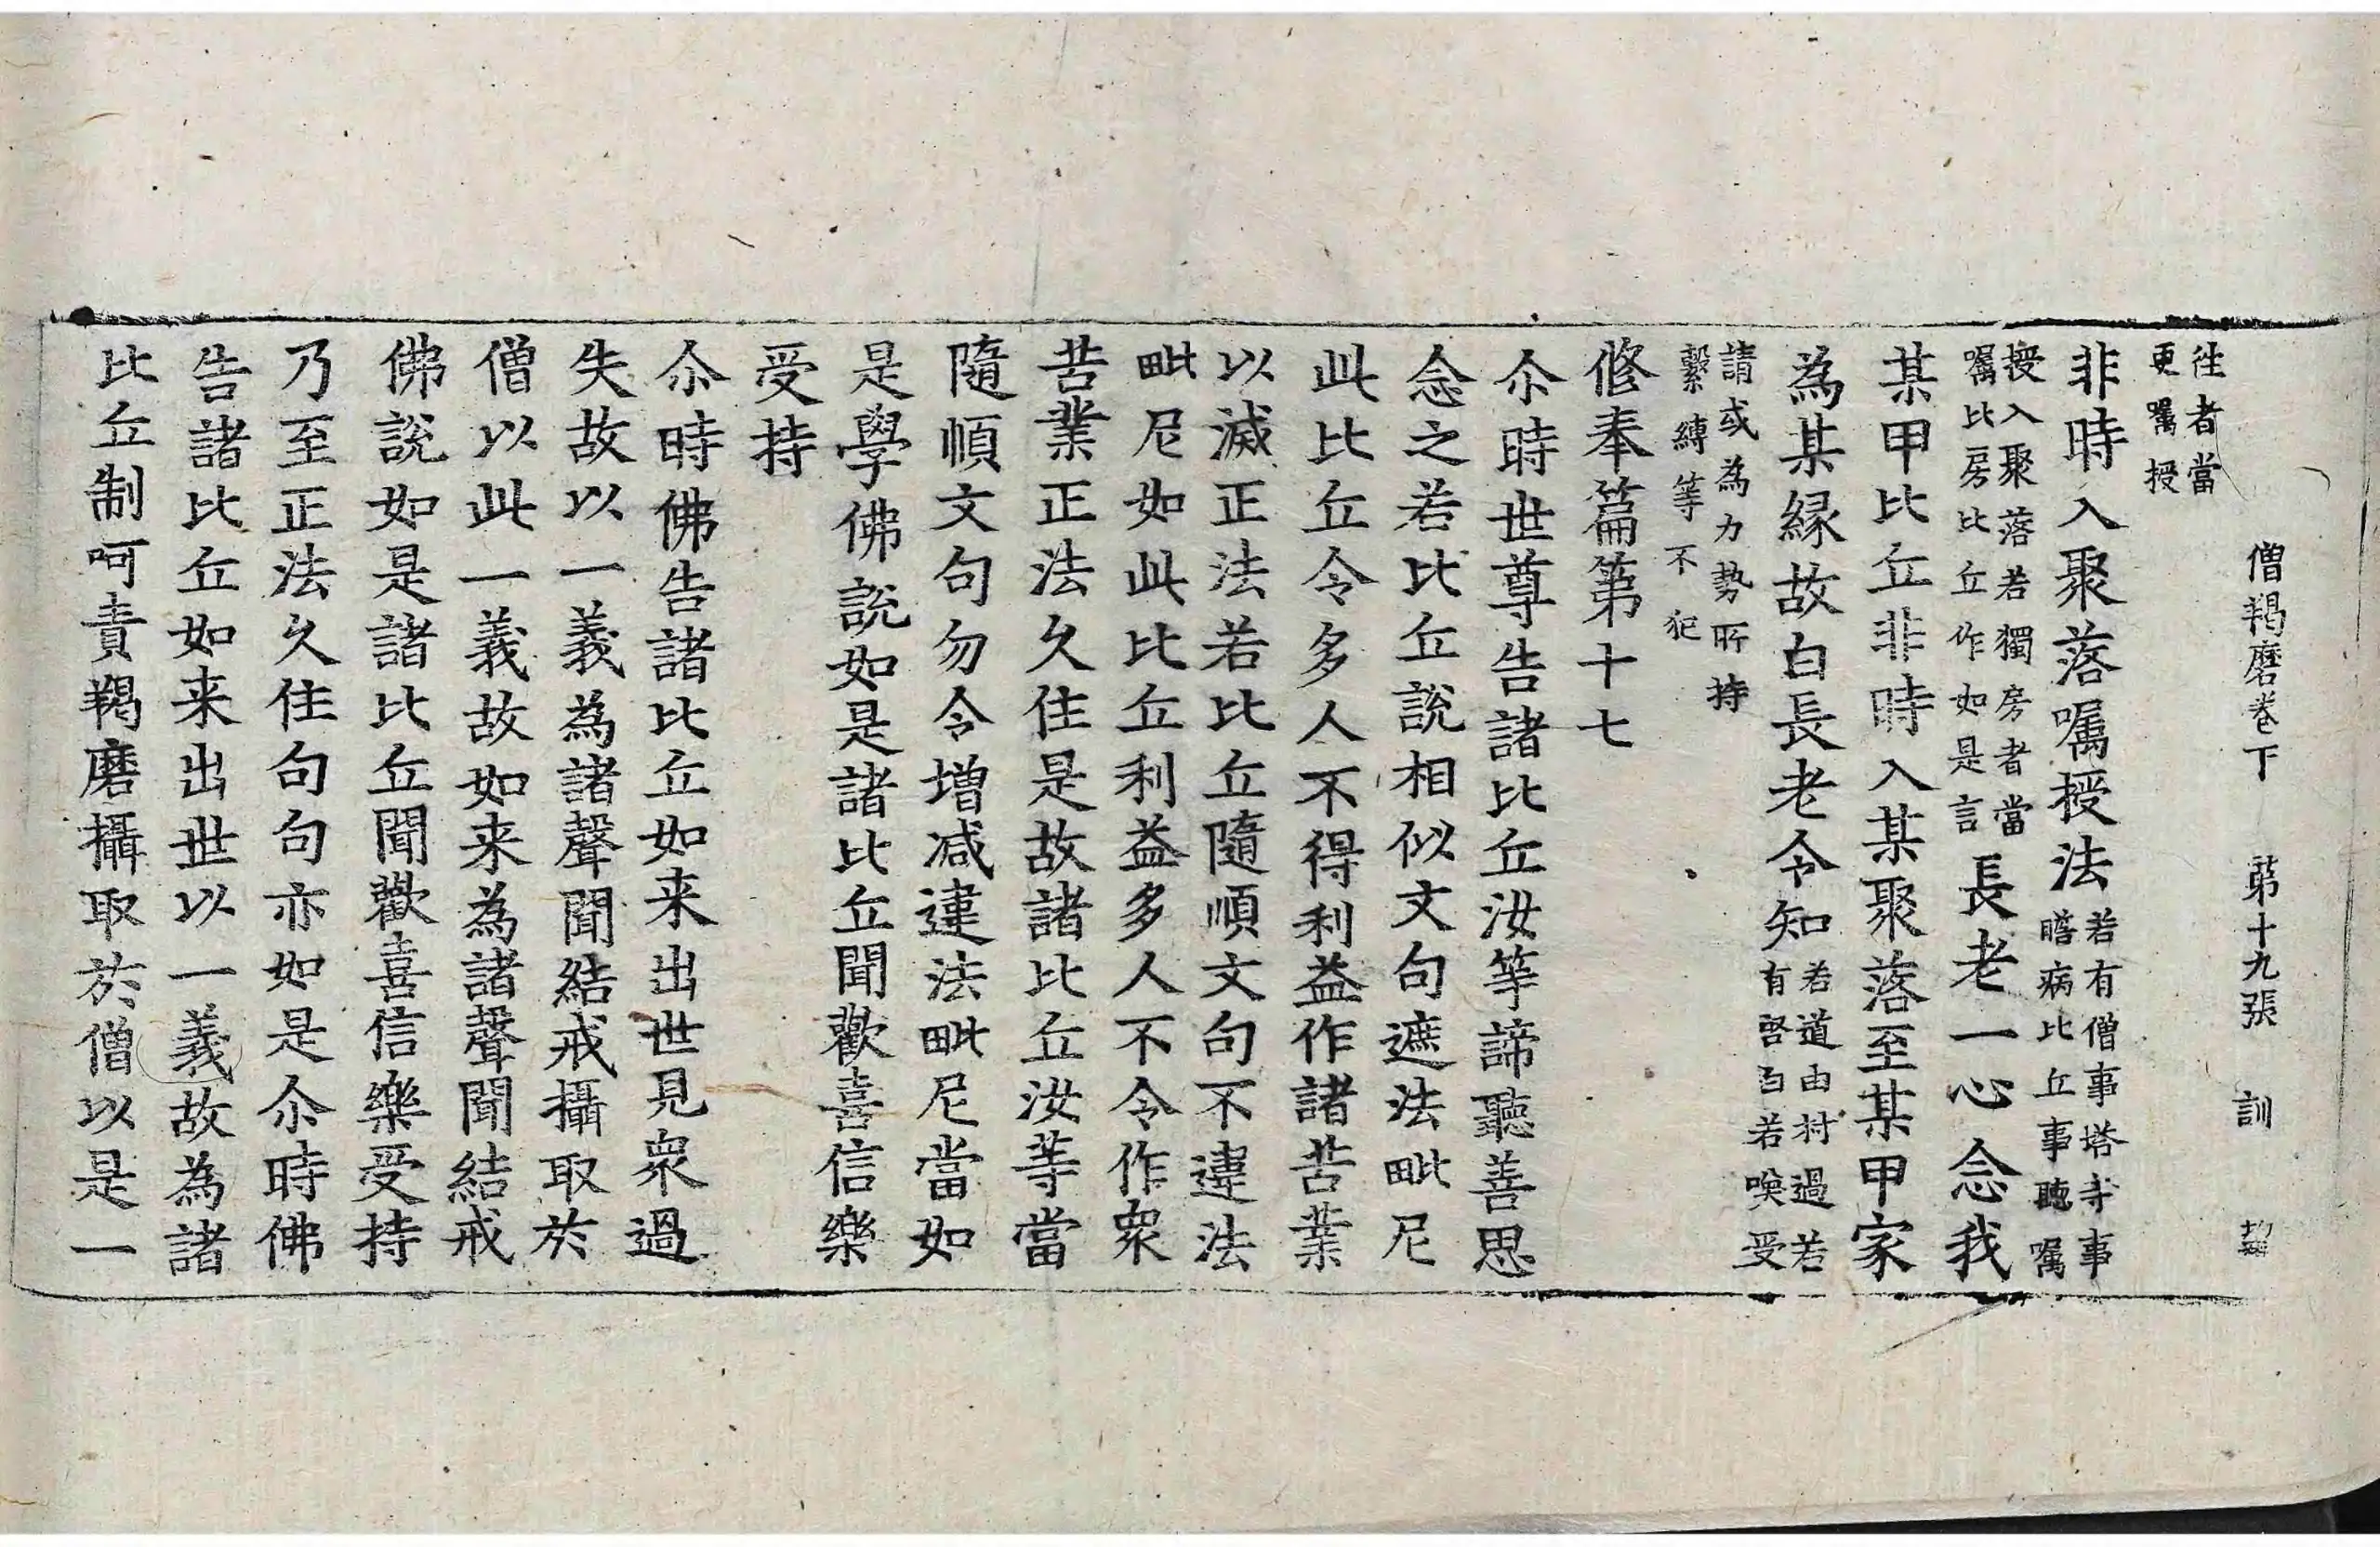 僧羯磨卷下　第十九張　訓
往者當
更囑授
非時入聚落囑授法若有僧事塔寺事
瞻病比丘事聽囑
授入聚落若獨房者當
囑比房比丘作如是言長老一心念我
某甲比丘非時入某聚落至某甲家
為某緣故白長老令知若道由村過若
有啓白若喚受
請或為力勢所持
繫縛等不犯
修奉篇第十七
尒時世尊告諸比丘汝等諦聽善思
念之若比丘說相似文句遮法毗尼
此比丘令多人不得利益作諸苦業
以滅正法若比丘隨順文句不違法
毗尼如此比丘利益多人不令作衆
苦業正法久住是故諸比丘汝等當
隨順文句勿令增减違法毗尼當如
是學佛說如是諸比丘聞歡喜信樂
受持
尒時佛告諸比丘如来出世見衆過
失故以一義為諸聲聞結戒攝取於
僧以此一義故如来為諸聲聞結戒
佛說如是諸比丘聞歡喜信樂受持
乃至正法久住句句亦如是尒時佛
告諸比丘如来出世以一義故為諸
比丘制呵責羯磨攝取於僧以是一